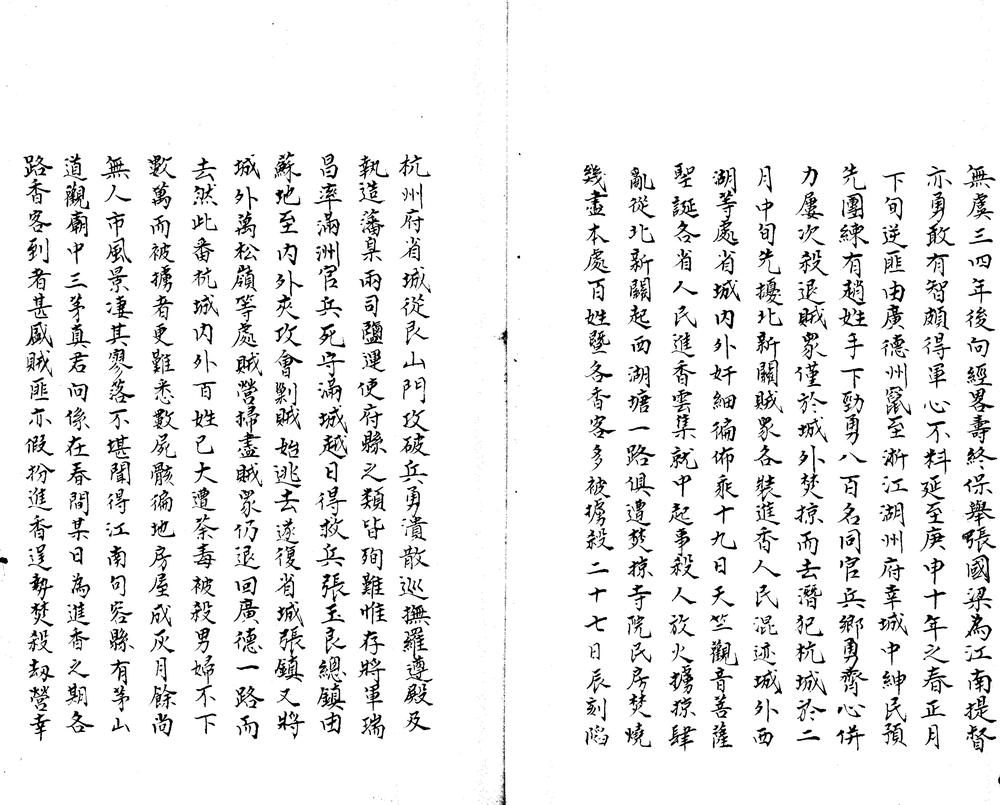 無虞三四年後向經畧壽終保舉張國梁為江南提督
亦勇敢有智頗得軍心不料延至庚申十年之春正月
下旬逆匪由廣德州竄至浙江湖州府幸城中紳民預
先團練有趙姓手下勁勇八百名同官兵鄉勇齊心併
力屢次殺退賊衆僅於城外焚掠而去潛犯杭城於二
月中旬先擾北新關賊衆各裝進香人民混迹城外西
湖等處省城內外奸細徧佈乘十九日天竺觀音菩薩
聖誕各省人民進香雲集就中起事殺人放火擄掠肆
亂從北新關起西湖塘一路俱遭焚掠寺院民房焚燒
幾盡本處百姓暨各香客多被擄殺二十七日辰刻陷
杭州府省城從艮山門攻破兵勇潰散巡撫羅遵殿及
執造藩臬兩司鹽運使府縣之類皆殉難惟存將軍瑞
昌率滿洲官兵死守滿城越日得救兵張玉良總鎮由
蘇地至內外夾攻會剿賊始逃去遂復省城張鎮又將
城外萬松嶺等處賊營掃盡賊衆仍退回廣德一路而
去然此番杭城內外百姓已大遭荼毒被殺男婦不下
數萬而被擄者更難悉數屍骸徧地房屋成灰月餘尚
無人市風景淒其寥落不堪聞得江南句容縣有茅山
道觀廟中三茅真君向係在春間某日為進香之期各
路香客到者甚盛賊匪亦假扮進香逞勢焚殺刼營幸